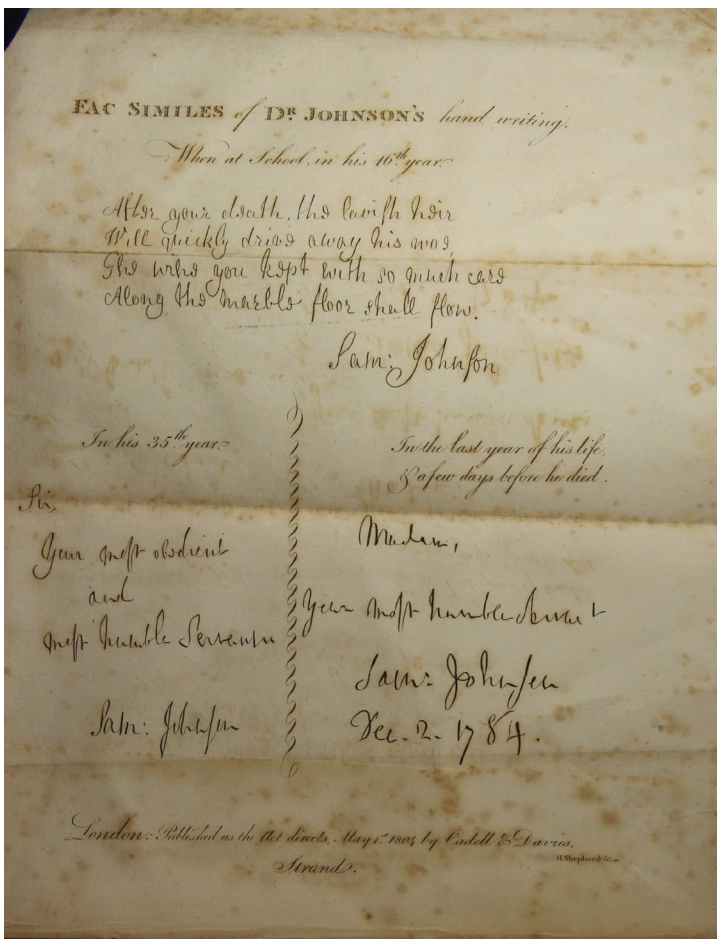 FAC SIMILES of DR. JOHNSON'S hand writing.
When at School, in his 16th year.
After your death, the lavish heir
Will quickly drive away his woe
The wine you kept with so much care
Along the marble floor shall flow.
Sam: Johnson
In his 35th year.
Sir,
Your most obedient
and
most humble Servant
Sam: Johnson
In the last year of his life,
& a few days before he died.
Madam,
Your most humble servant
Sam: Johnson
Dec. 2. 1784.
London: Published as the Act directs, May 1st 1804 by Cadell & Davies,
Strand.
H. Shepherd sc.